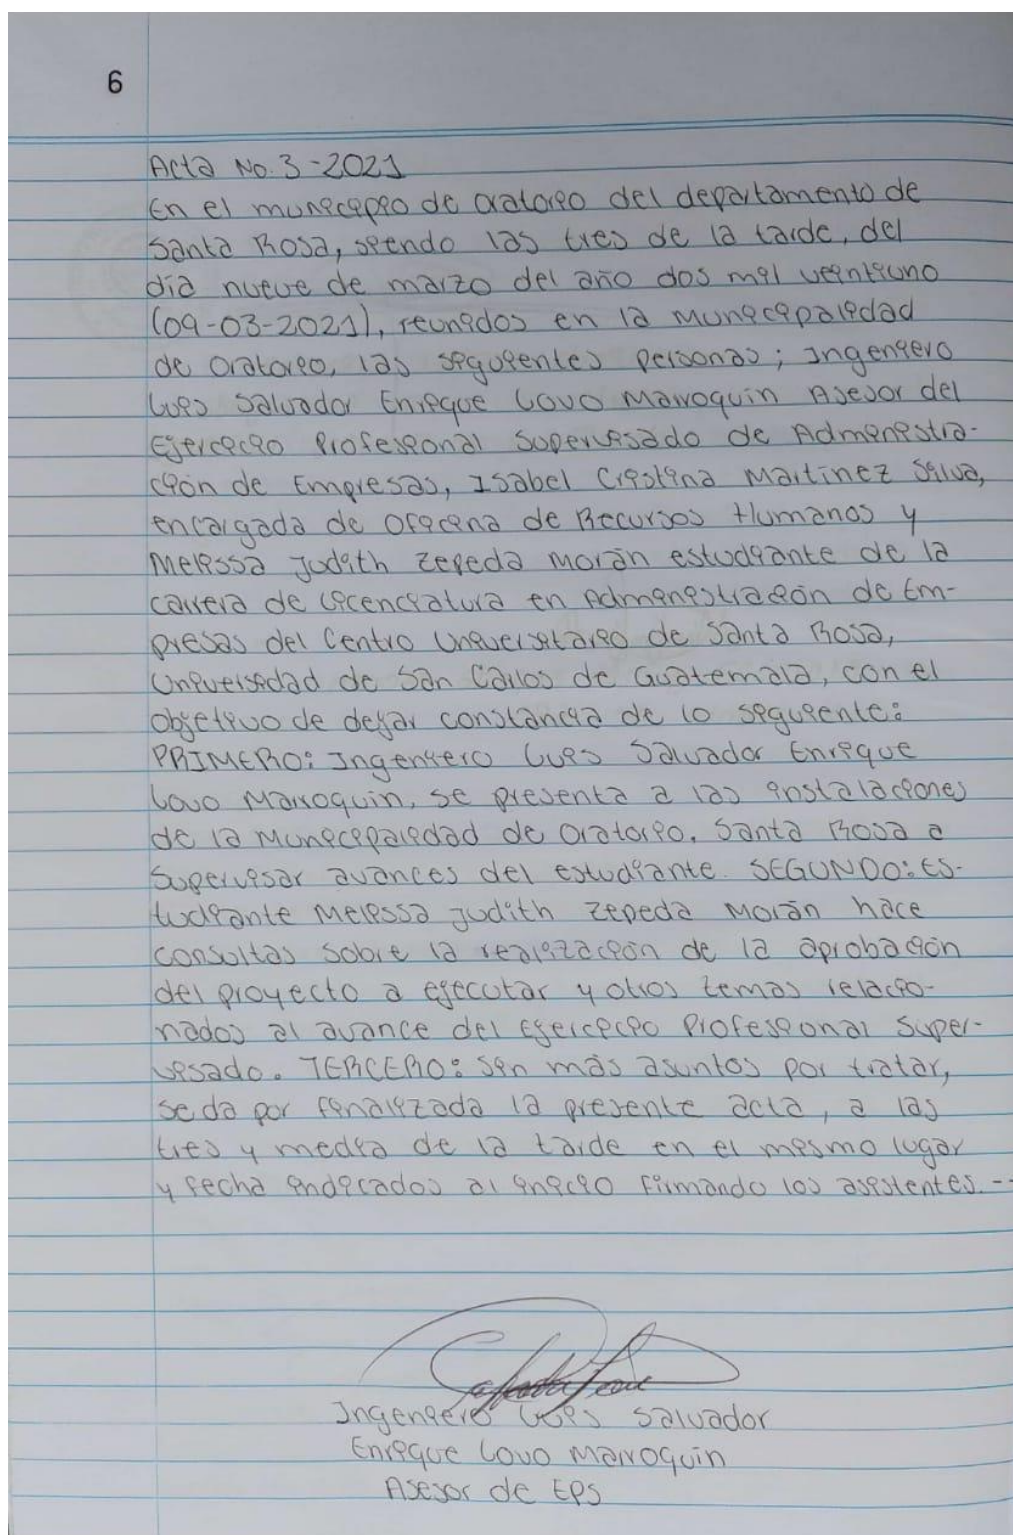 6
Acta No. 3-2021
En el municipio de Oratorio del departamento de
Santa Rosa, siendo las tres de la tarde, del
día nueve de marzo del año dos mil veintiuno
(09-03-2021), reunidos en la Municipalidad
de Oratorio, las siguientes personas; Ingeniero
Luis Salvador Enrique Lovo Marroquin Asesor del
Ejercicio Profesional Supervisado de Administra-
ción de Empresas, Isabel Cristina Martínez Silva,
encargada de Oficina de Recursos Humanos y
Melissa Judith Zepeda Morán estudiante de la
carrera de Licenciatura en Administración de Em-
presas del Centro Universitario de Santa Rosa,
Universidad de San Carlos de Guatemala, con el
objetivo de dejar constancia de lo siguiente:
PRIMERO: Ingeniero Luis Salvador Enrique
Lovo Marroquin, se presenta a las instalaciones
de la Municipalidad de Oratorio, Santa Rosa a
supervisar avances del estudiante. SEGUNDO: Es-
tudiante Melissa Judith Zepeda Morán hace
consultas sobre la realización de la aprobación
del proyecto a ejecutar y otros temas relacio-
nados al avance del Ejercicio Profesional Super-
visado. TERCERO: Sin más asuntos por tratar,
se da por finalizada la presente acta, a las
tres y media de la tarde en el mismo lugar
y fecha indicados al inicio firmando los asistentes. --
Ingeniero Luis Salvador
Enrique Lovo Marroquin
Asesor de EPS